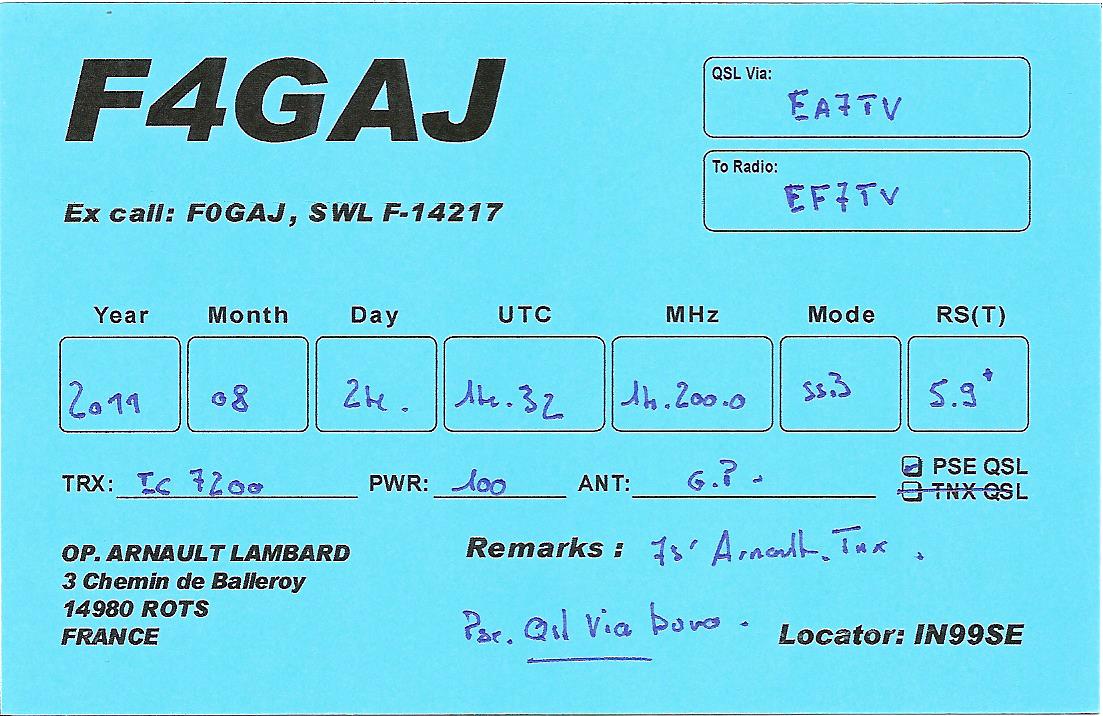 F4GAJ
Ex call: F0GAJ, SWL F-14217
QSL Via:
EA7TV
To Radio:
EF7TV
Year Month Day UTC MHz Mode RS(T)
2011 08 24. 14.32 14.200.0 SSB 5.9+
TRX: IC 7200 PWR: 100 ANT: G.P.
PSE QSL
TNX QSL
OP. ARNAULT LAMBARD
3 Chemin de Balleroy
14980 ROTS
FRANCE
Remarks : 73' Arnault. Tnx .
Pse. Qsl Via buro .
Locator: IN99SE